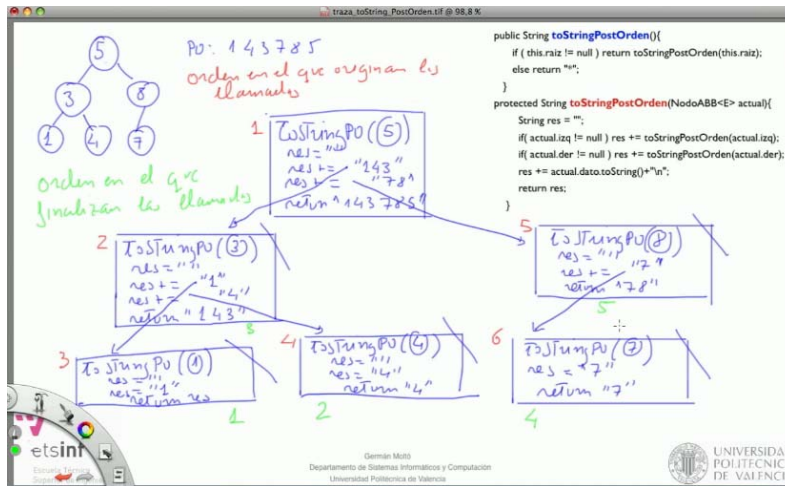 traza_toString_PostOrden.tif @ 98,8 %
5
3
8
1
4
7
PO: 1 4 3 7 8 5
orden en el que originan las
llamadas
orden en el que
finalizan las llamadas
public String toStringPostOrden(){
if ( this.raiz != null ) return toStringPostOrden(this.raiz);
else return "*";
}
protected String toStringPostOrden(NodoABB<E> actual){
String res = "";
if( actual.izq != null ) res += toStringPostOrden(actual.izq);
if( actual.der != null ) res += toStringPostOrden(actual.der);
res += actual.dato.toString()+"\n";
return res;
}
1
toStringPO(5)
res=""
res+= "143"
res+= "78"
return "143785"
2
toStringPO(3)
res=""
res+= "1"
res+= "4"
return "143"
3
5
toStringPO(8)
res=""
res+= "7"
return "78"
5
3
toStringPO(1)
res=""
res="1"
return res
1
4
toStringPO(4)
res=""
res="4"
return "4"
2
6
toStringPO(7)
res="7"
return "7"
4
etsinf
Escuela Técnica
Germán Moltó
Departamento de Sistemas Informáticos y Computación
Universidad Politécnica de Valencia
UNIVERSIDA
POLITECNIC
DE VALENCI